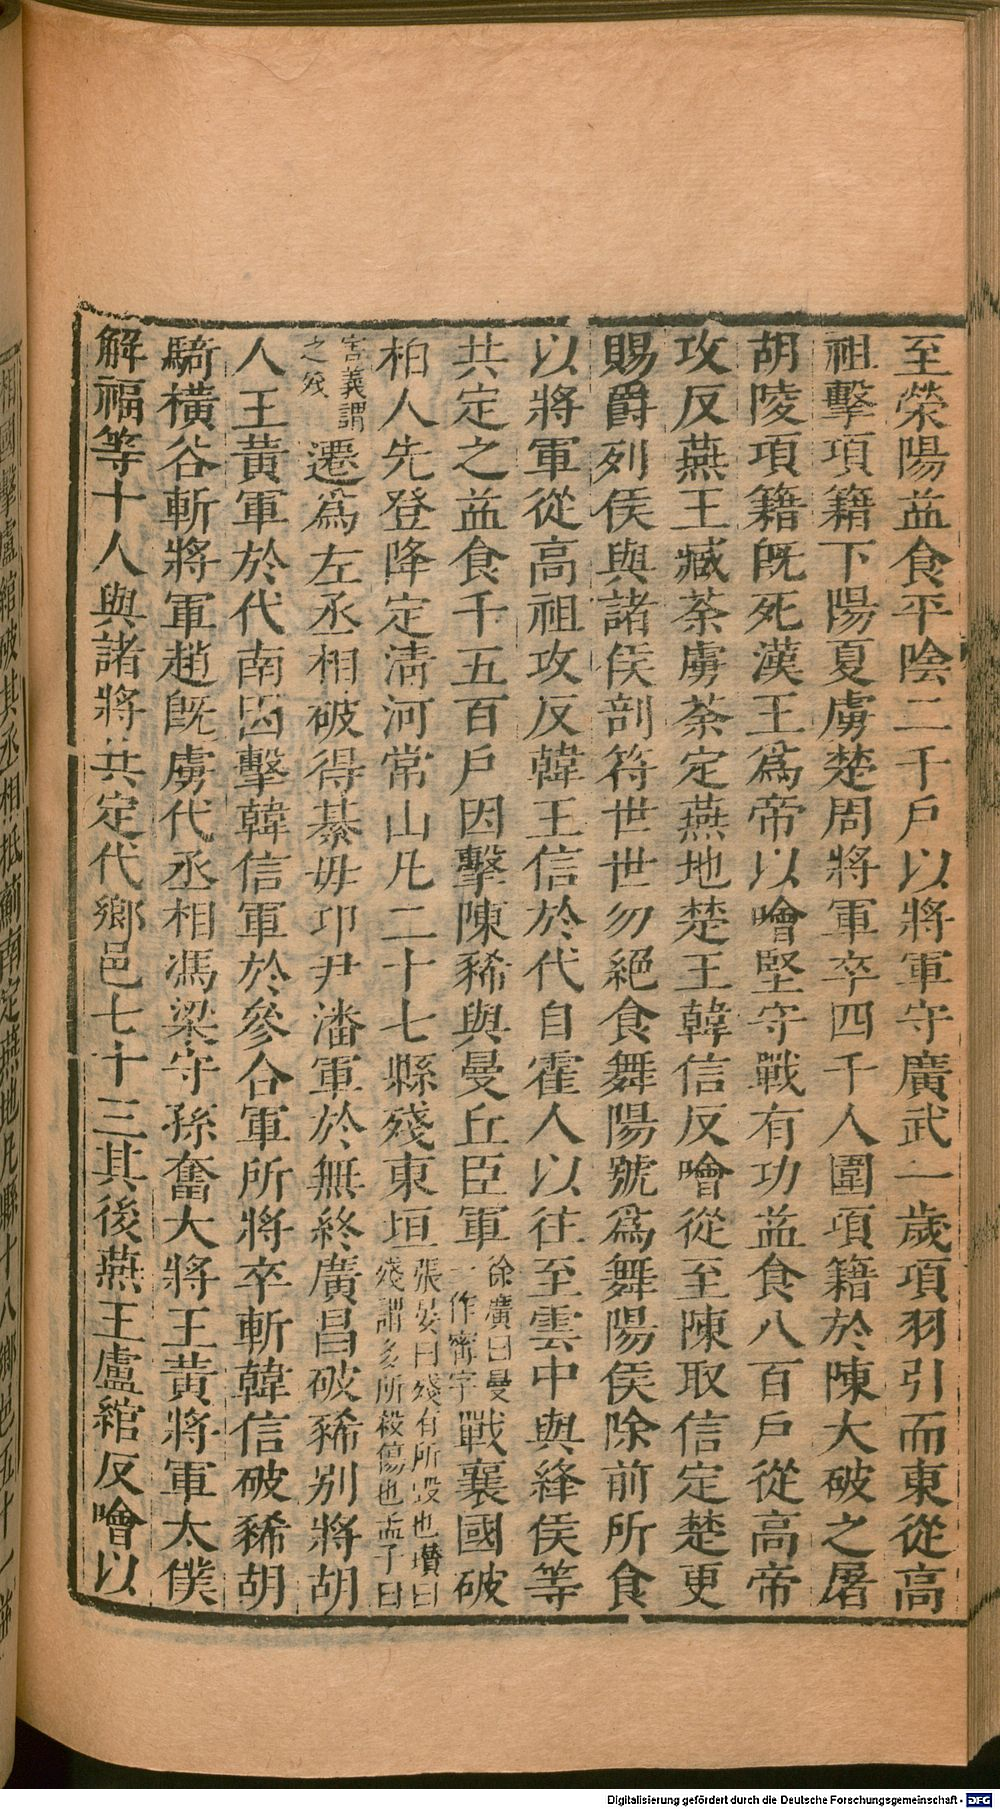 至滎陽益食平陰二千戶以將軍守廣武一歲項羽引而東從高
祖擊項籍下陽夏虜楚周將軍卒四千人圍項籍於陳大破之屠
胡陵項籍旣死漢王爲帝以噲堅守戰有功益食八百戶從高帝
攻反燕王臧荼虜荼定燕地楚王韓信反噲從至陳取信定楚更
賜爵列侯與諸侯剖符世世勿絕食舞陽號爲舞陽侯除前所食
以將軍從高祖攻反韓王信於代自霍人以往至雲中與絳侯等
共定之益食千五百戶因擊陳豨與曼丘臣軍徐廣曰曼一作甯字戰襄國破
柏人先登降定淸河常山凡二十七縣殘東垣張晏曰殘有所毀也瓚曰殘謂多所殺傷也孟子曰
害義謂之殘遷爲左丞相破得綦毋卬尹潘軍於無終廣昌破豨別將胡
人王黃軍於代南因擊韓信軍於參合軍所將卒斬韓信破豨胡
騎橫谷斬將軍趙旣虜代丞相馮梁守孫奮大將王黃將軍太僕
解福等十人與諸將共定代鄉邑七十三其後燕王盧綰反噲以
相國擊盧綰破其丞相抵薊南定燕地凡縣十八鄉邑五十一益
Digitalisierung gefördert durch die Deutsche Forschungsgemeinschaft - DFG